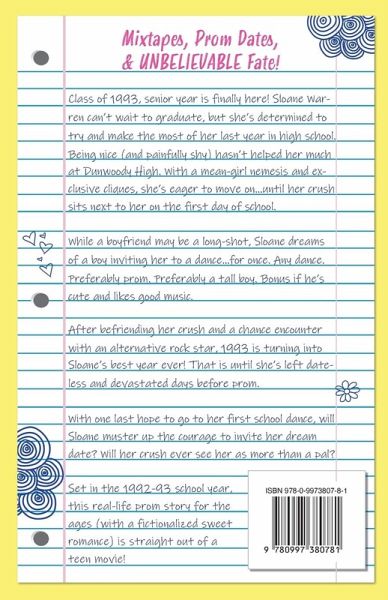 Mixtapes, Prom Dates,
& UNBELIEVABLE Fate!
Class of 1993, senior year is finally here! Sloane War-
ren can't wait to graduate, but she's determined to
try and make the most of her last year in high school.
Being nice (and painfully shy) hasn't helped her much
at Dunwoody High. With a mean-girl nemesis and ex-
clusive cliques, she's eager to move on...until her crush
sits next to her on the first day of school.
While a boyfriend may be a long-shot, Sloane dreams
of a boy inviting her to a dance...for once. Any dance.
Preferably prom. Preferably a tall boy. Bonus if he's
cute and likes good music.
After befriending her crush and a chance encounter
with an alternative rock star, 1993 is turning into
Sloane's best year ever! That is until she's left date-
less and devastated days before prom.
With one last hope to go to her first school dance, will
Sloane muster up the courage to invite her dream
date? Will her crush ever see her as more than a pal?
Set in the 1992-93 school year,
this real-life prom story for the
ages (with a fictionalized sweet
romance) is straight out of a
teen movie!
ISBN 978-0-9973807-8-1
9 780997 380781